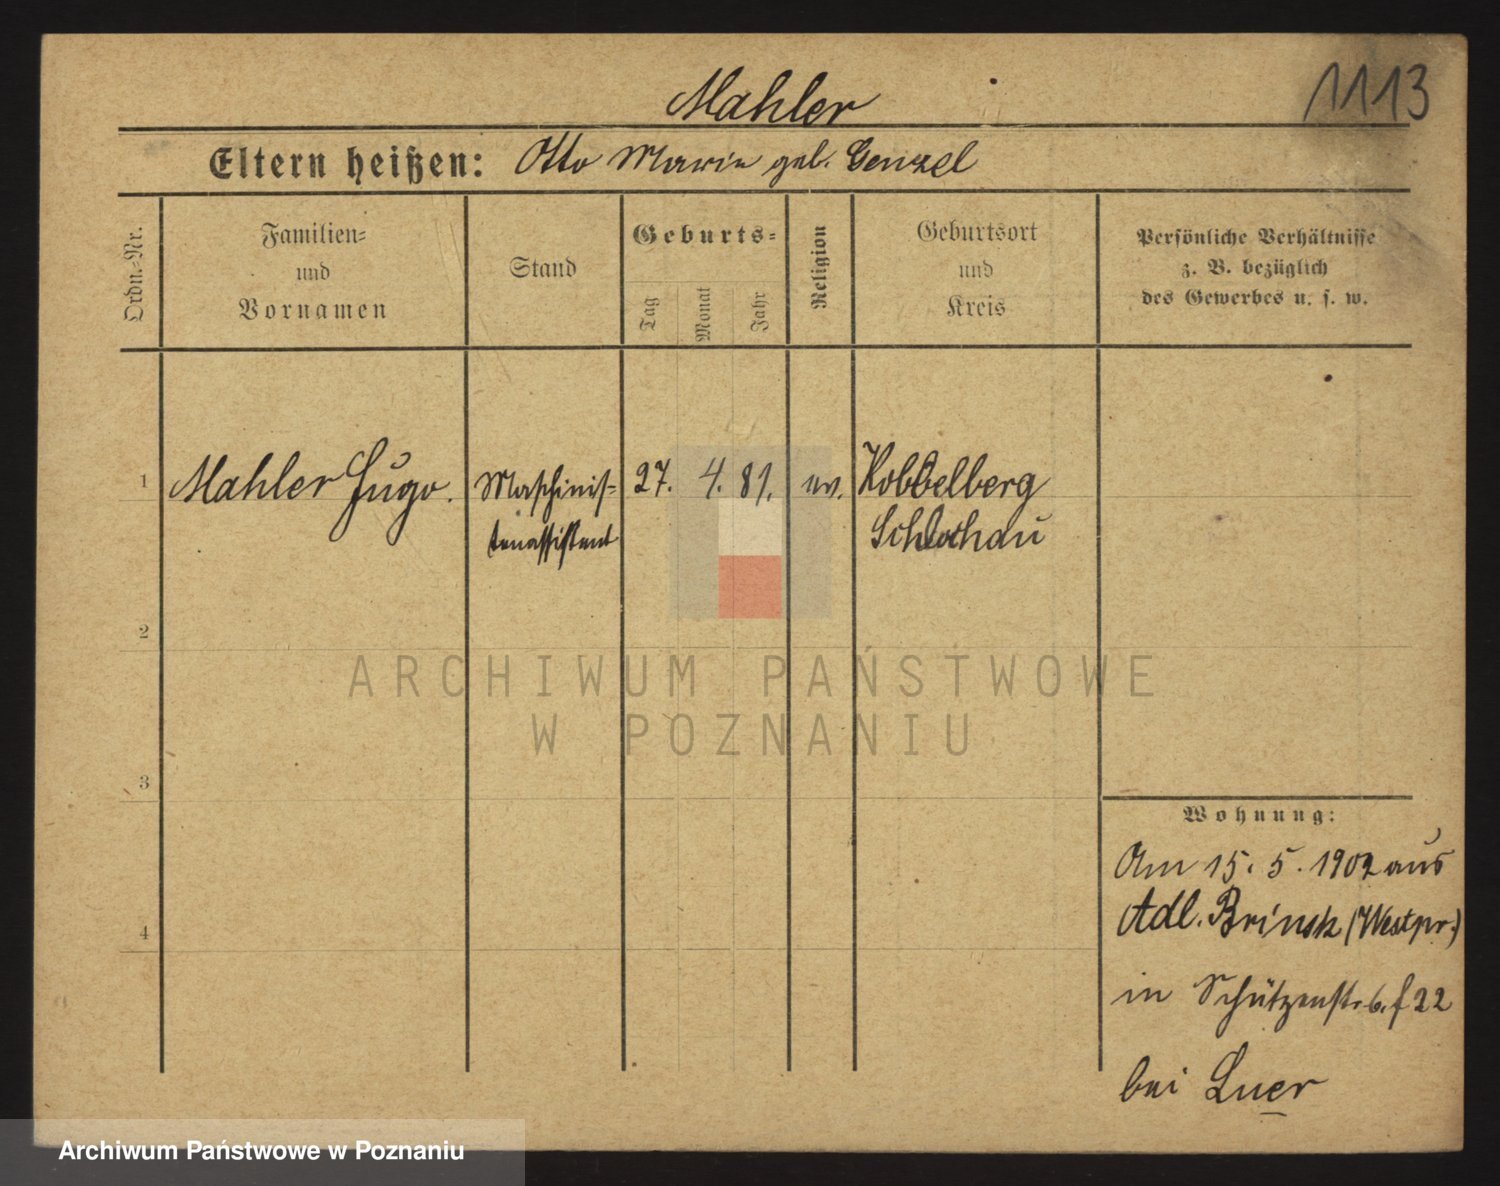 1113
Mahler
Eltern heißen: Otto Marie geb. Genzel
Ordn.-Nr.
Familien-
und
Vornamen
Stand
Geburts-
Tag
Monat
Jahr
Religion
Geburtsort
und
Kreis
Persönliche Verhältnisse
z. B. bezüglich
des Gewerbes u. s. w.
1 Mahler Hugo. Maschinis- 27. 4. 81. ev. Kobbelberg
tenassistent Schlochau
2
3
4
Wohnung:
Am 15. 5. 1902 aus
Adl. Brinsk (Westpr.)
in Schützenstr. 22
bei Luer
ARCHIWUM PAŃSTWOWE
W POZNANIU
Archiwum Państwowe w Poznaniu